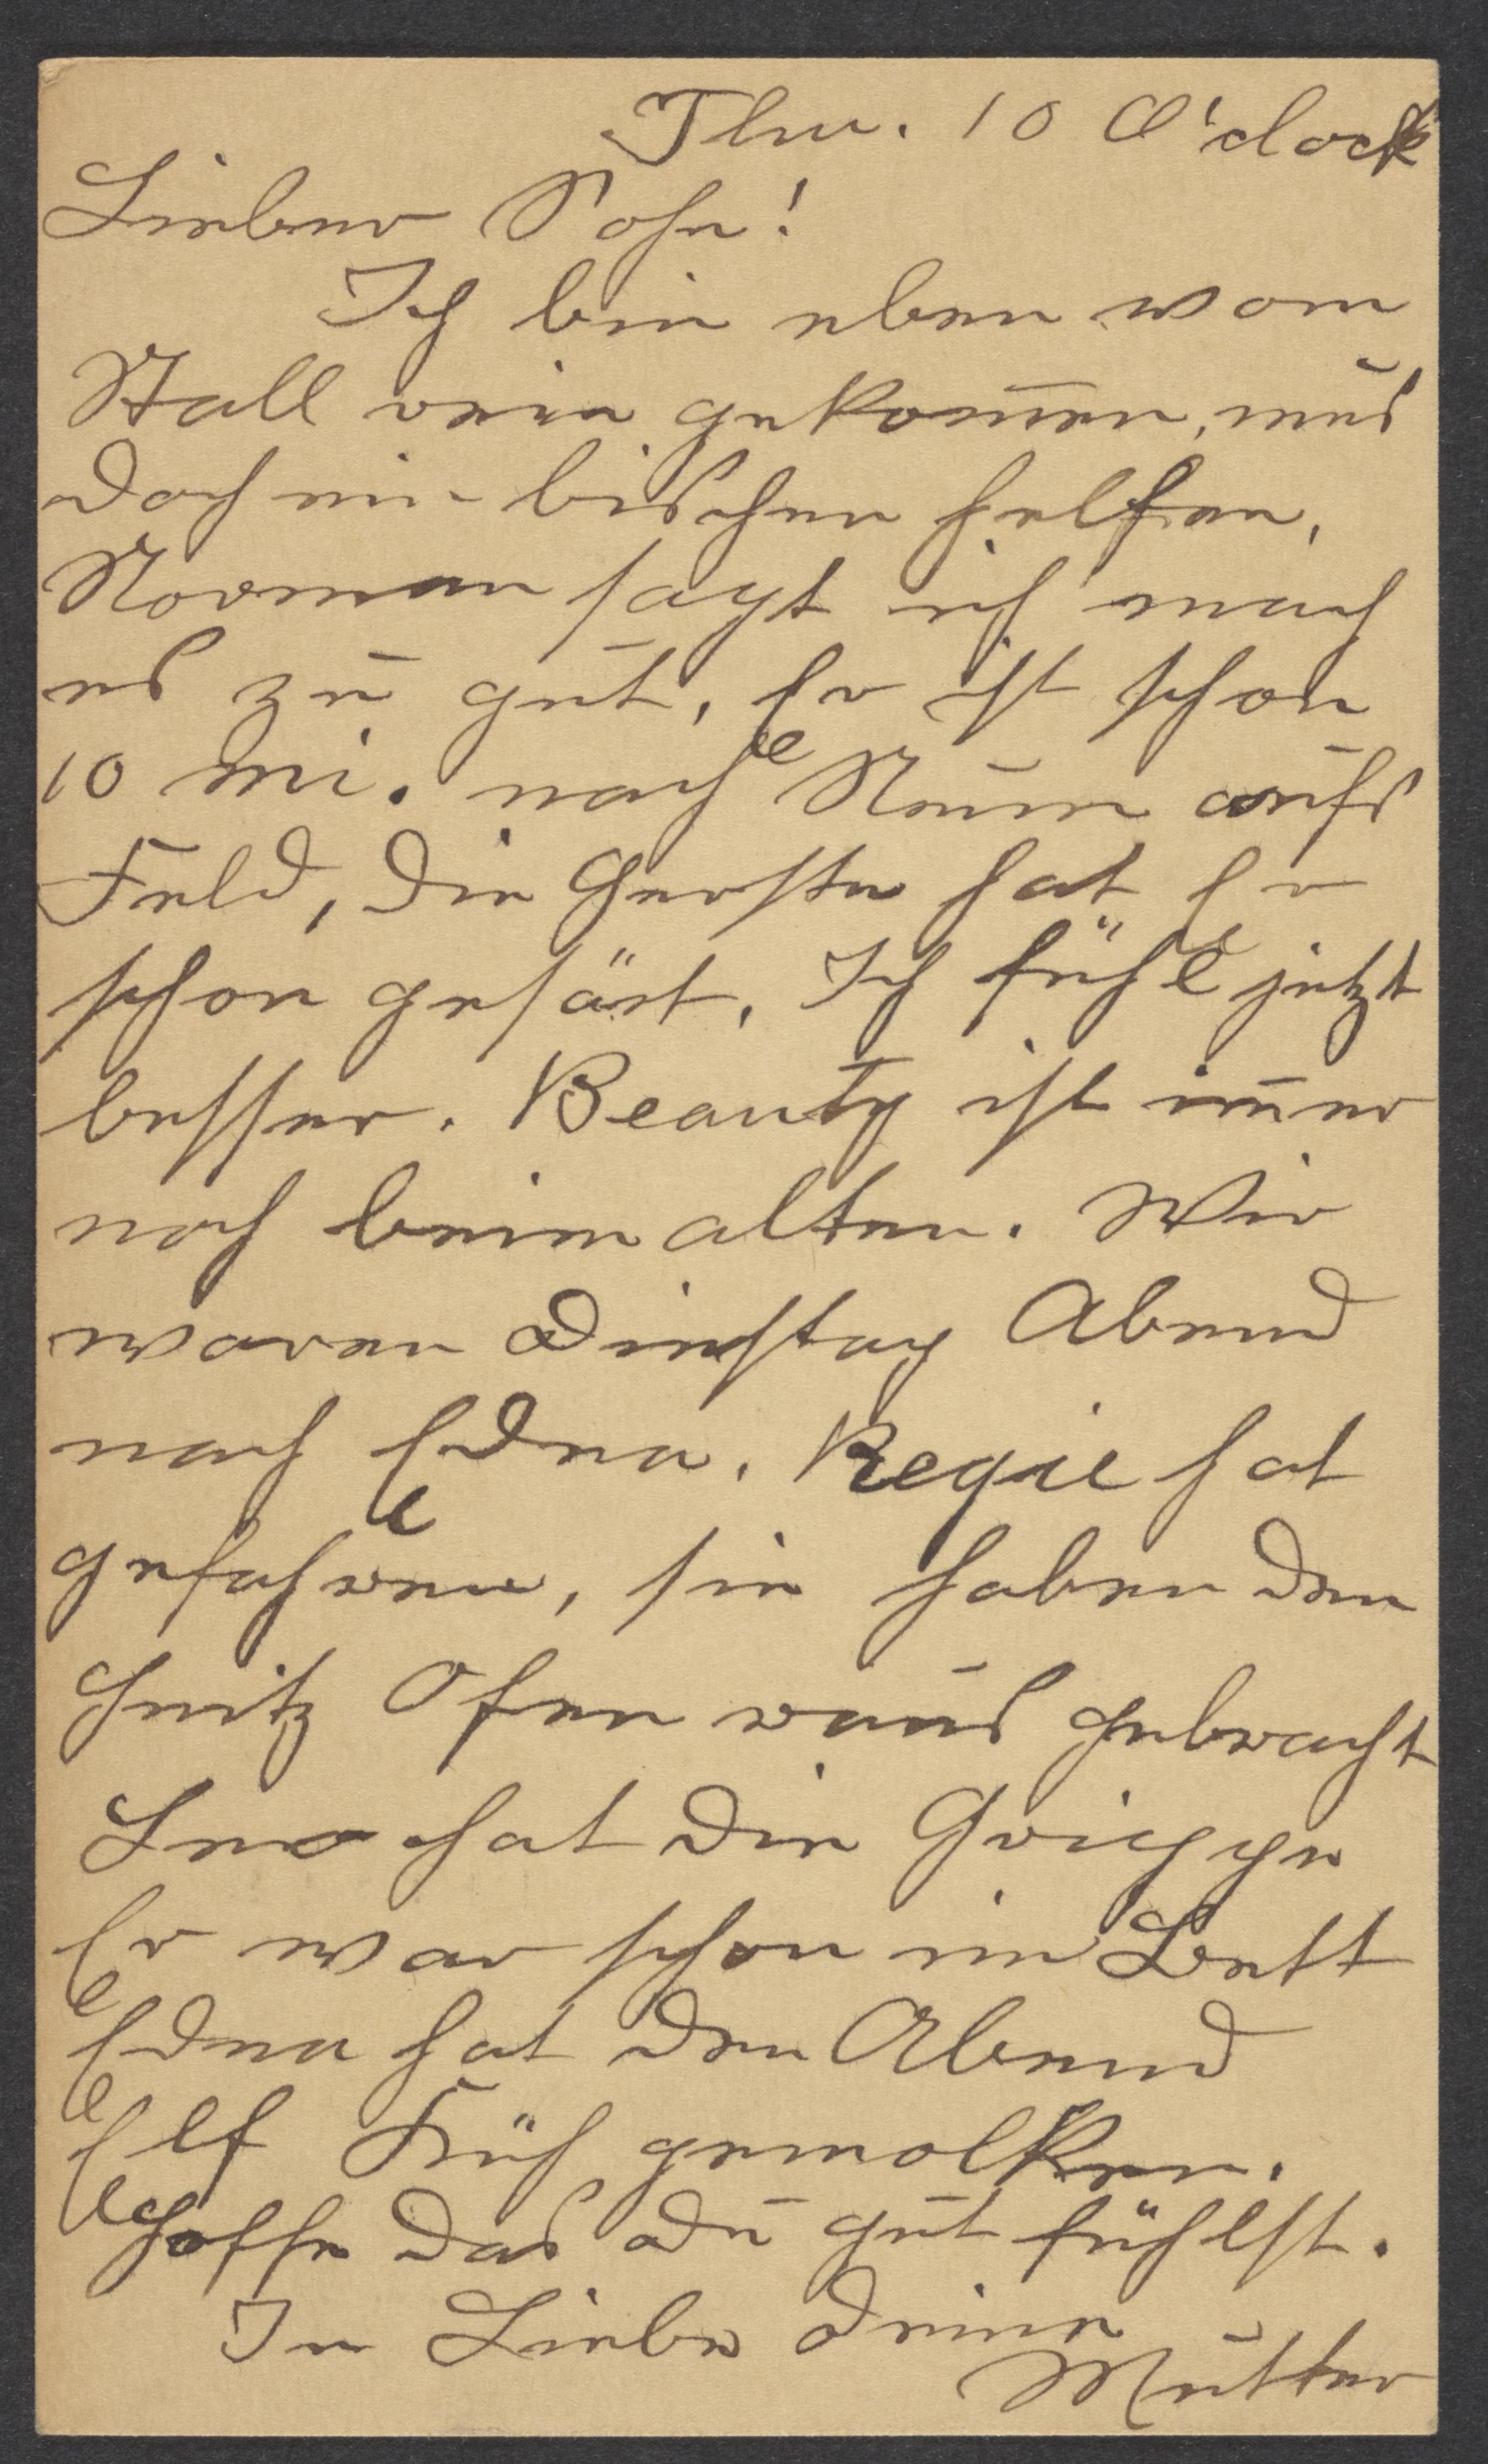 Thu. 10 O'clock
Lieber Sohn!
Ich bin eben vom
Stall rein gekom̅en, mus
doch ein bischen helfen,
Norman sagt ich mach
es zu gut, Er ist schon
10 mi. nach Neun aufs
Feld, die Gerste hat Er
schon gesäet, Ich fühl jetzt
besser. Beauty ist im̅er
noch beim alten. Wir
waren Dinstag Abend
nach Edna. Regie hat
gefahren, sie haben den
Heitz Ofen raus gebracht
Leo hat die Grippe
Er war schon im Bett
Edna hat den Abend
Elf Küh gemolken.
Hoffe das du gut fühlst.
In Liebe deine
Mutter